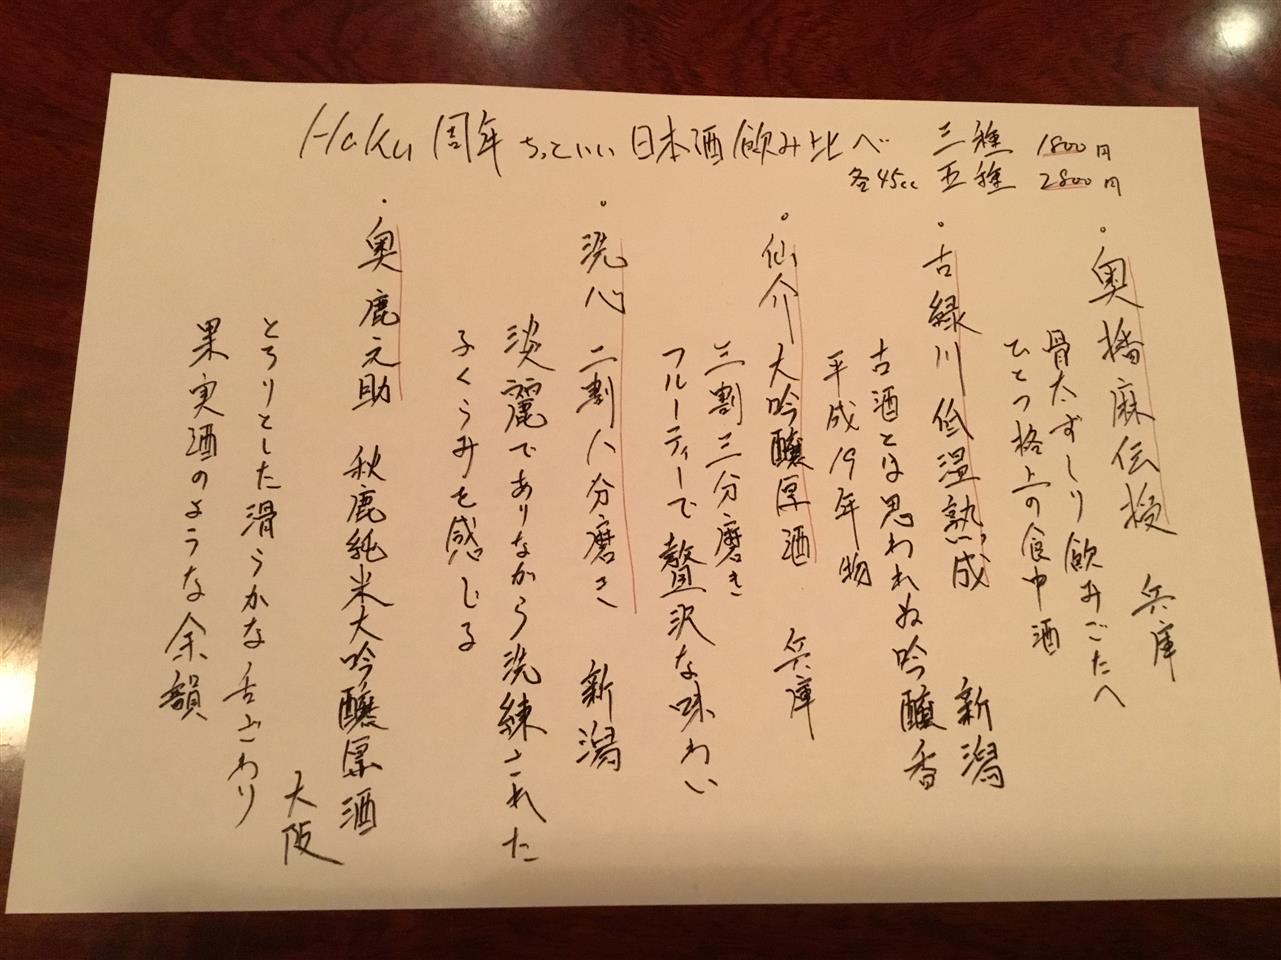 Haku 周年 ちょっといい日本酒飲み比べ 三種 1800円
各45cc 五種 2800円
・奥播麻伝授 兵庫
骨太ずしり飲みごたへ
ひとつ格上の食中酒
・古緑川 低温熟成 新潟
古酒とは思われぬ吟醸香
平成19年物
・仙介 大吟醸原酒 兵庫
三割三分磨き
フルーティーで贅沢な味わい
・洗心 二割八分磨き 新潟
淡麗でありながら洗練された
ふくらみを感じる
・奥鹿之助 秋鹿純米大吟醸原酒
大阪
とろりとした滑らかな舌ざわり
果実酒のような余韻